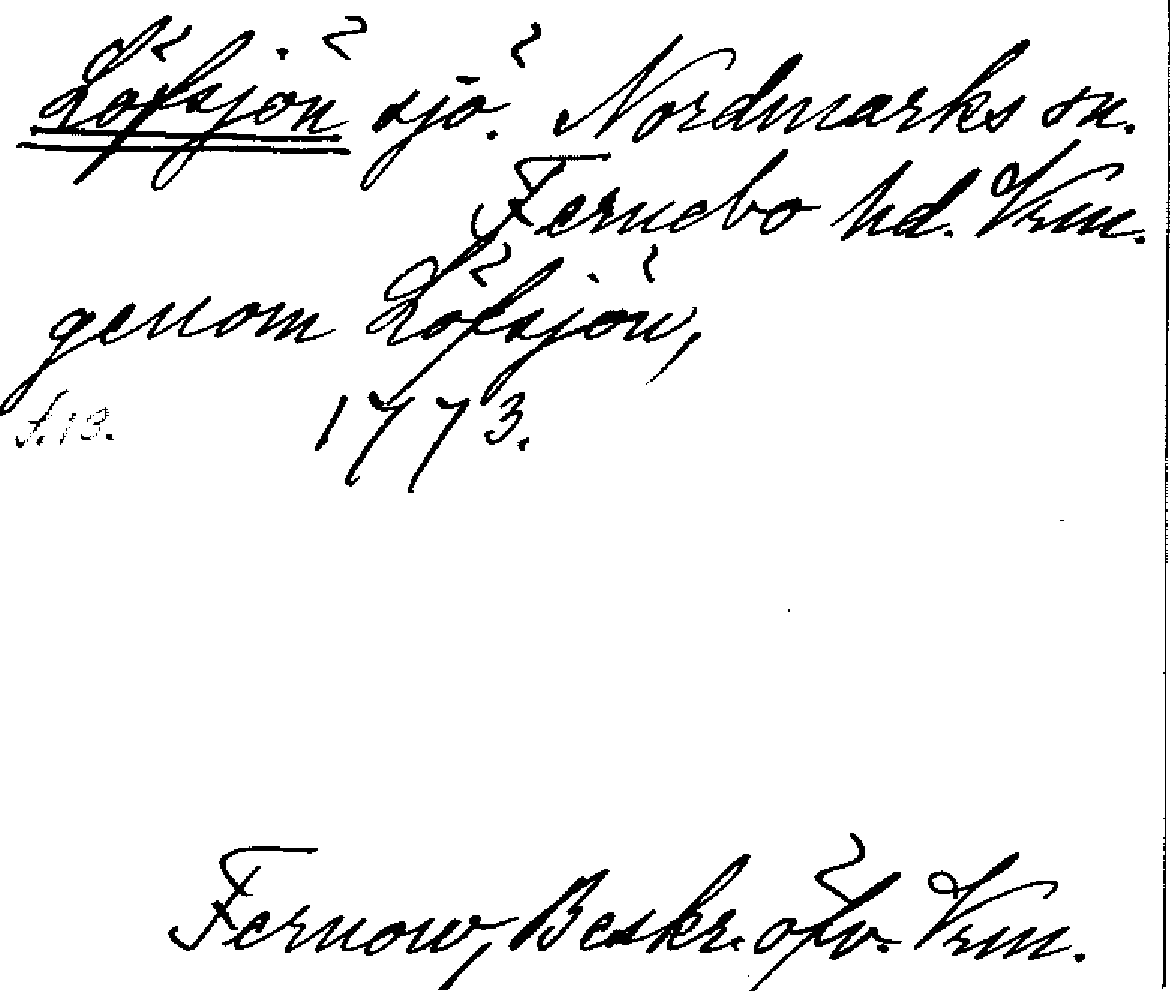 Löfsjön sjö. Nordmarks sn.
Fernebo hd. Vrm.
genom Löfsjön,
s. 13. 1773.
Fernow, Beskr. öfv. Vrm.